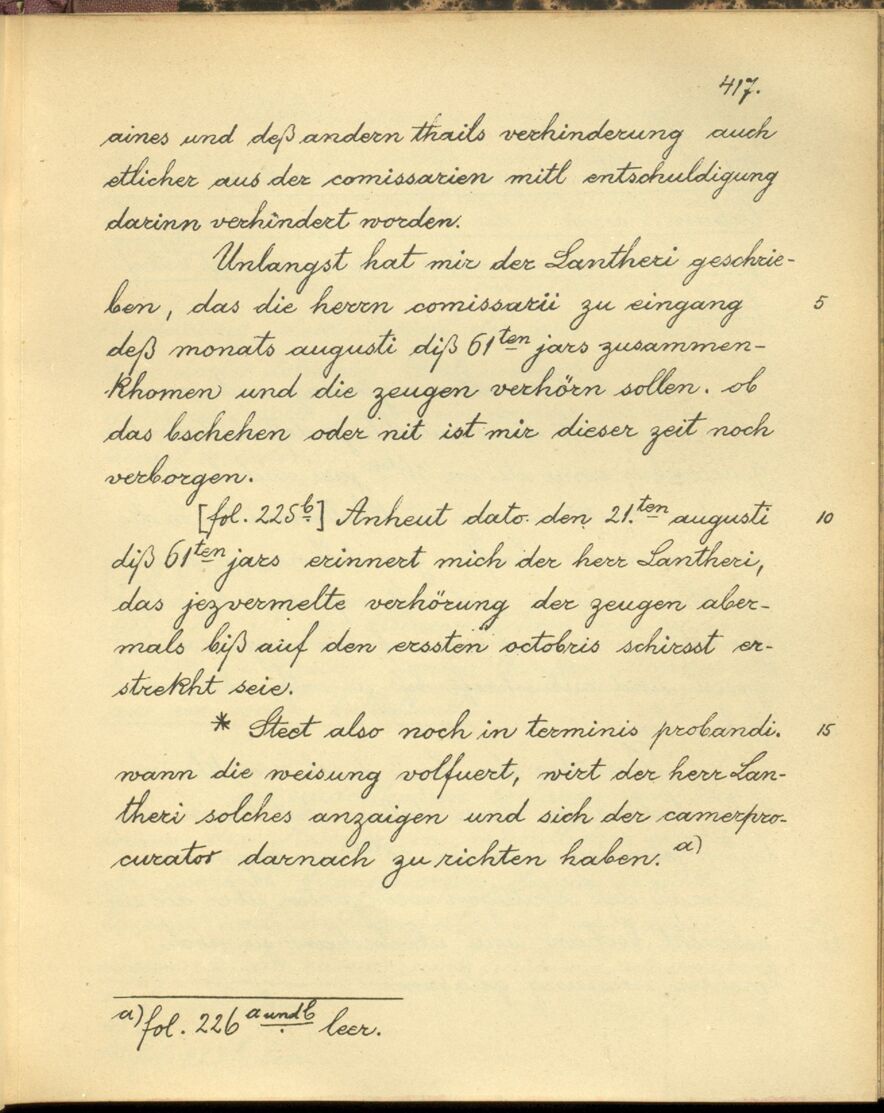 417.
aines und deß andern thails verhinderung auch
etlicher aus der comissarien mitl entschuldigung
darinn verhindert worden.
Unlangst hat mir der Lantheri geschrie-
ben, das die herrn comissarii zu eingang 5
deß monats augusti diß 61ten jars zusammen-
khomen und die zeugen verhörn sollen. ob
das bschehen oder nit ist mir dieser zeit noch
verborgen.
[fol. 225b] Anheut dato den 21.ten augusti 10
diß 61ten jars erinnert mich der herr Lantheri,
das jezvermelte verhörung der zeugen aber-
mals biß auf den erssten octobris schirsst er-
strekht seie.
* Steet also noch in terminis probandi. 15
wann die weisung volfuert, wirt der herr Lan-
theri solches anzaigen und sich der camerpro-
curator darnach zu richten haben. a)
a) fol. 226 a und b leer.